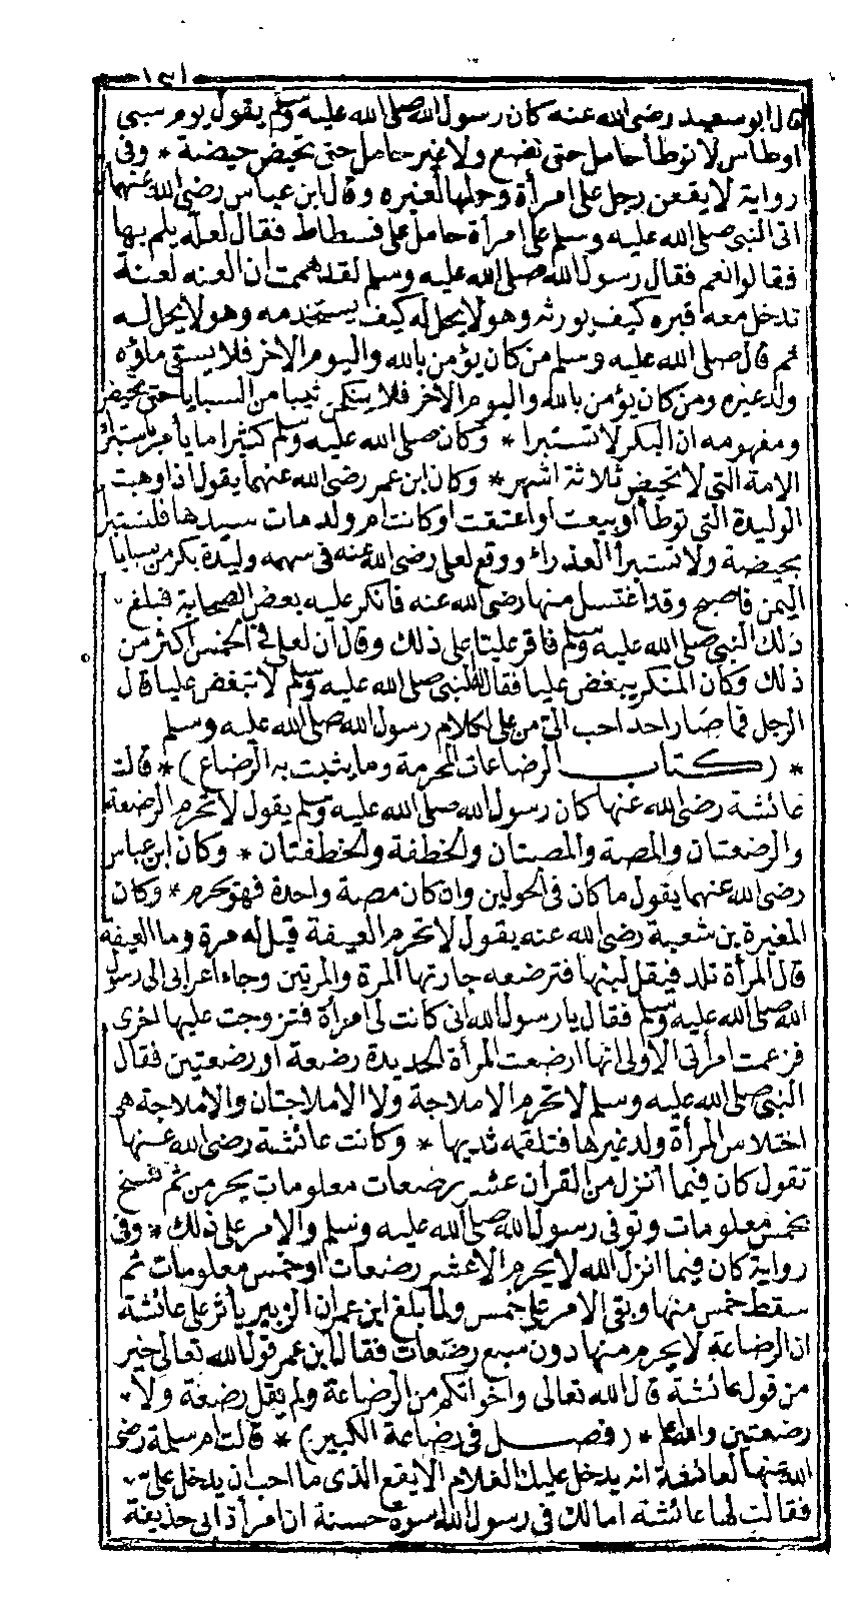 ١٣١
قال ابو سعيد رضى الله عنه كان رسول الله صلى الله عليه وسلم يقول يوم سبي
اوطاس لا توطأ حامل حتى تضع ولا غير حامل حتى تحيض حيضة * وفى
رواية لا يقعن رجل على امرأة وحملها لغيره وقال ابن عباس رضى الله عنهما
اتى النبي صلى الله عليه وسلم على امرأة حامل على فسطاط فقال لعله يلم بها
فقالوا نعم فقال رسول الله صلى الله عليه وسلم لقد هممت ان العنه لعنة
تدخل معه قبره كيف يورثه وهو لا يحل له كيف يستخدمه وهو لا يحل له
ثم قال صلى الله عليه وسلم من كان يؤمن بالله واليوم الاخر فلا يسقى ماؤه
ولد غيره ومن كان يؤمن بالله واليوم الاخر فلا ينكحن ثيبا من السبايا حتى تحيض
ومفهومه ان البكر لا تستبرا * وكان صلى الله عليه وسلم كثيرا ما يأمر باستبراء
الامة التي لا تحيض ثلاثة اشهر * وكان ابن عمر رضى الله عنهما يقول اذا وهبت
الوليدة التي توطأ او بيعت او اعتقت او كانت ام ولد مات سيدها فلتستبرا
بحيضة ولا تستبرأ العذراء ووقع لعلى رضى الله عنه فى سهمه وليدة بكر من سبايا
اليمن فاصبح وقد اغتسل منها رضى الله عنه فانكر عليه بعض الصحابة فبلغ
ذلك النبي صلى الله عليه وسلم فاقر عليا على ذلك وقال ان لعلى فى الخمس اكثر من
ذلك وكان المنكر يبغض عليا فقال النبي صلى الله عليه وسلم لا تبغض عليا قال
الرجل فما صار احد احب الى من على لكلام رسول الله صلى الله عليه وسلم
* (كتاب الرضاعات المحرمة وما يثبت به الرضاع) * قالت
عائشة رضى الله عنها كان رسول الله صلى الله عليه وسلم يقول لا تحرم الرضعة
والرضعتان والمصة والمصتان والخطفة والخطفتان * وكان ابن عباس
رضى الله عنهما يقول ما كان فى الحولين وان كان مصة واحدة فهو يحرم * وكان
المغيرة بن شعبة رضى الله عنه يقول لا تحرم العيفة قيل له مرة وما العيفة
قال المرأة تلد فيقل لبنها فترضعه جارتها المرة والمرتين وجاء اعرابى الى رسول
الله صلى الله عليه وسلم فقال يا رسول الله انى كانت لى امرأة فتزوجت عليها اخرى
فزعمت امرأتى الاولى انها ارضعت المرأة الجديدة رضعة او رضعتين فقال
النبي صلى الله عليه وسلم لا تحرم الاملاجة ولا الاملاجتان والاملاجة هى
اختلاس المرأة ولد غيرها فتلقمه ثديها * وكانت عائشة رضى الله عنها
تقول كان فيما انزل من القرآن عشر رضعات معلومات يحرمن ثم نسخ
بخمس معلومات وتوفى رسول الله صلى الله عليه وسلم والامر على ذلك * وفى
رواية كان فيما انزل الله لا يحرم الا عشر رضعات او خمس معلومات ثم
سقط خمس منها وبقى الامر على خمس ولما بلغ ابن عمر ان الزبير يأثر على عائشة
ان الرضاعة لا يحرم منها دون سبع رضعات فقال ابن عمر قول الله تعالى خير
من قول عائشة قال الله تعالى واخواتكم من الرضاعة ولم يقل رضعة ولا
رضعتين والله اعلم * (فصل فى رضاعة الكبير) * قالت ام سلمة رضى
الله عنها لعائشة انه يدخل عليك الغلام الايفع الذى ما احب ان يدخل على
فقالت لها عائشة امالك فى رسول الله اسوة حسنة ان امرأة ابى حذيفة